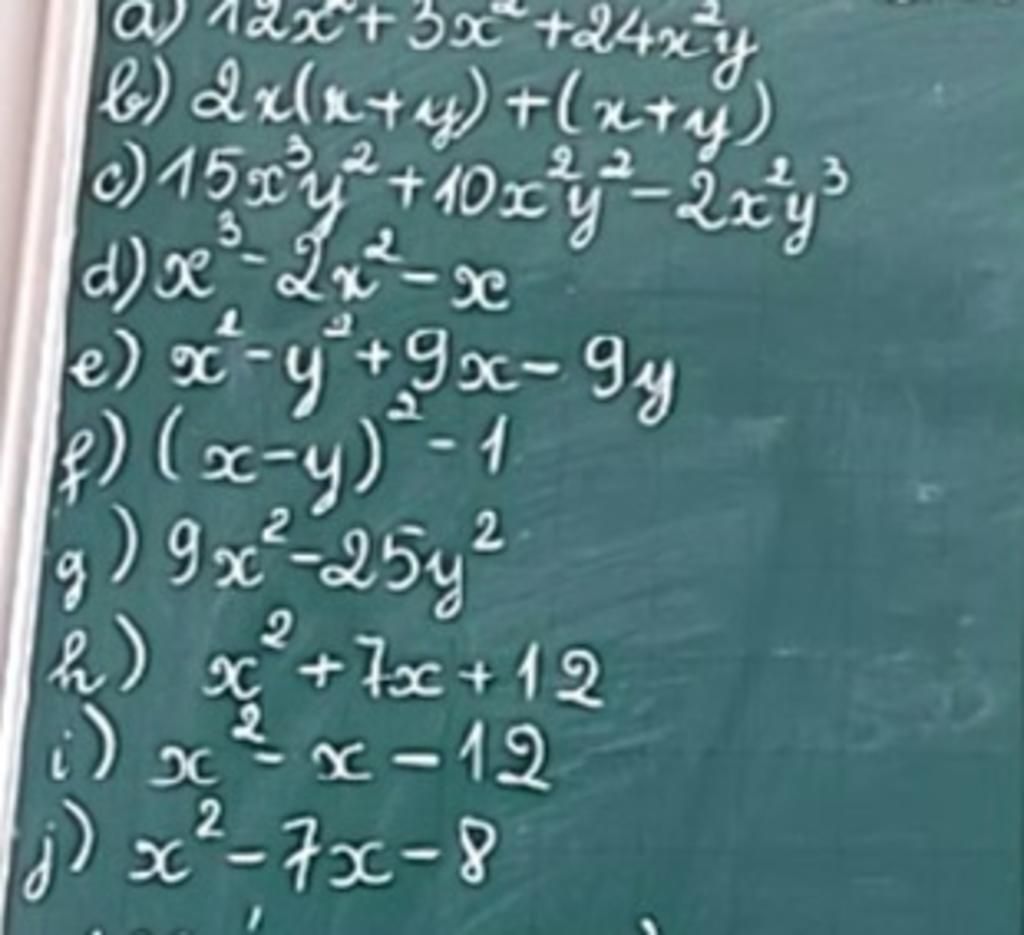 a) 12x² + 3x² + 24x²y
b) 2x(x+y) + (x+y)
c) 15x³y² + 10x²y² - 2x²y³
d) x³ - 2x² - x
e) x² - y² + 9x - 9y
f) (x-y)² - 1
g) 9x² - 25y²
h) x² + 7x + 12
i) x² - x - 12
j) x² - 7x - 8